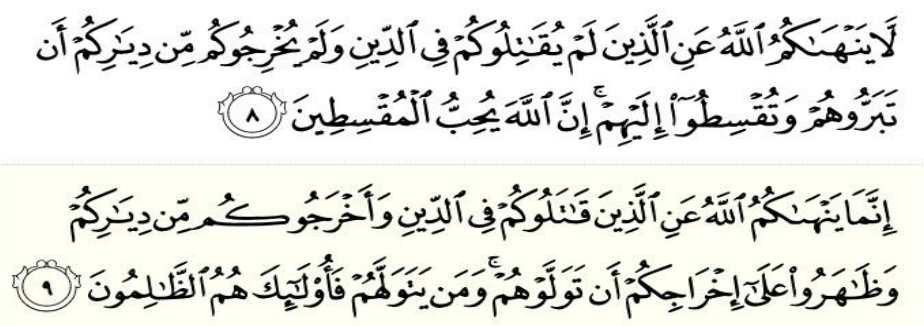 لَّا يَنۡهَىٰكُمُ ٱللَّهُ عَنِ ٱلَّذِينَ لَمۡ يُقَٰتِلُوكُمۡ فِي ٱلدِّينِ وَلَمۡ يُخۡرِجُوكُم مِّن دِيَٰرِكُمۡ أَن
تَبَرُّوهُمۡ وَتُقۡسِطُوٓاْ إِلَيۡهِمۡۚ إِنَّ ٱللَّهَ يُحِبُّ ٱلۡمُقۡسِطِينَ ٨
إِنَّمَا يَنۡهَىٰكُمُ ٱللَّهُ عَنِ ٱلَّذِينَ قَٰتَلُوكُمۡ فِي ٱلدِّينِ وَأَخۡرَجُوكُم مِّن دِيَٰرِكُمۡ
وَظَٰهَرُواْ عَلَىٰٓ إِخۡرَاجِكُمۡ أَن تَوَلَّوۡهُمۡۚ وَمَن يَتَوَلَّهُمۡ فَأُوْلَٰٓئِكَ هُمُ ٱلظَّٰلِمُونَ ٩